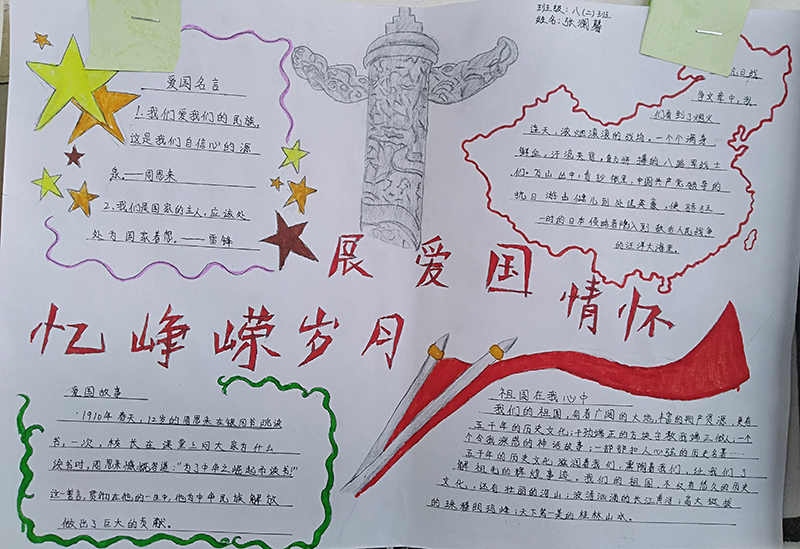 班级：八(二)班
姓名：张澜馨
爱国名言
1.我们爱我们的民族,
这是我们自信心的源
泉——周恩来
2.我们是国家的主人,应该处
处为国家着想。——雷锋
抗日战
争文章中,我
们看到了烟火
连天,浓烟滚滚的战场。一个个满身
鲜血,汗流夹背,的八路军战士
们。万山丛中,青纱帐里,中国共产党领导的
抗日游击健儿到处逞英豪,使
一时的日本侵略者陷入到人民战争
的汪洋大海里。
展爱国
情怀
忆峥嵘岁月
爱国故事
1910年春天,12岁的周恩来在银冈书院读
书,一次,校长在课堂上问大家为什么
读书时,周恩来慨然答道:"为了中华之崛起而读书!"
这一誓言,贯彻在他的一生中,他为中华民族解放
做出了巨大的贡献。
祖国在我心中
我们的祖国,有着广阔的大地,丰富的矿产资源,更有
五千年的历史文化;千钧端正的方块字教我端正做人;一个
个令我深思的神话故事;一部部扣人心弦的历史名著……
五千年的历史文化滋润着我们,熏陶着我们,让我们了
解祖先的辉煌事迹。我们的祖国,不仅有悠久的历史
文化,还有壮丽的河山;波涛汹涌的长江黄河;高大挺拔
的珠穆朗玛峰;天下第一美的桂林山水。